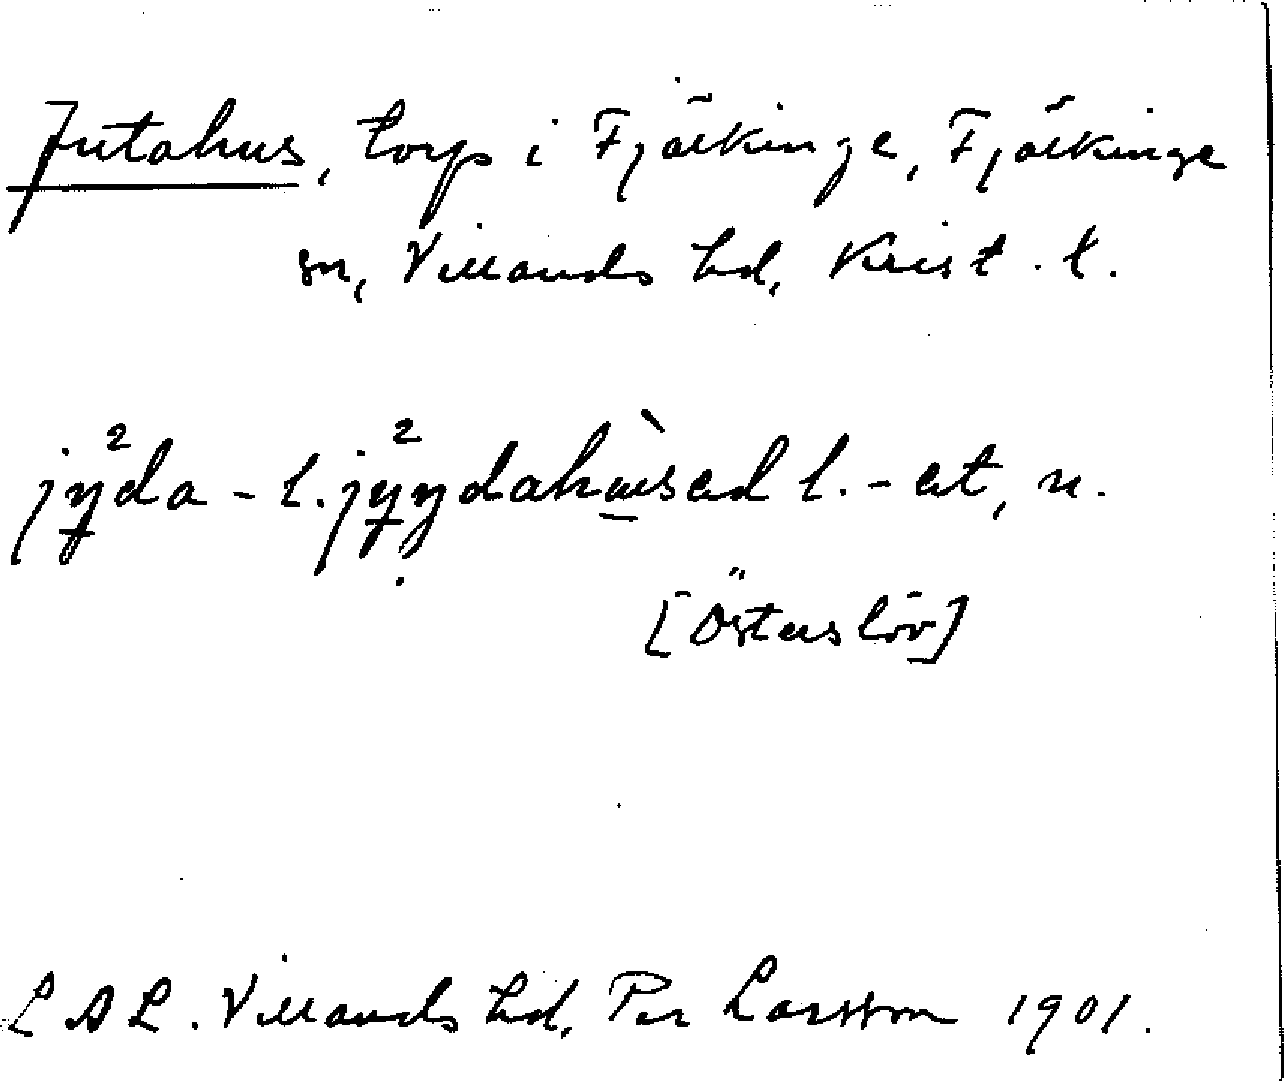 Jutahus, torp i Fjälkinge, Fjälkinge
sn, Villands hd, Krist. l.
jy²da- l. jy²ydahùsed l. -et, n.
[Österslöv]
LAL. Villands hd, Per Larsson 1901.